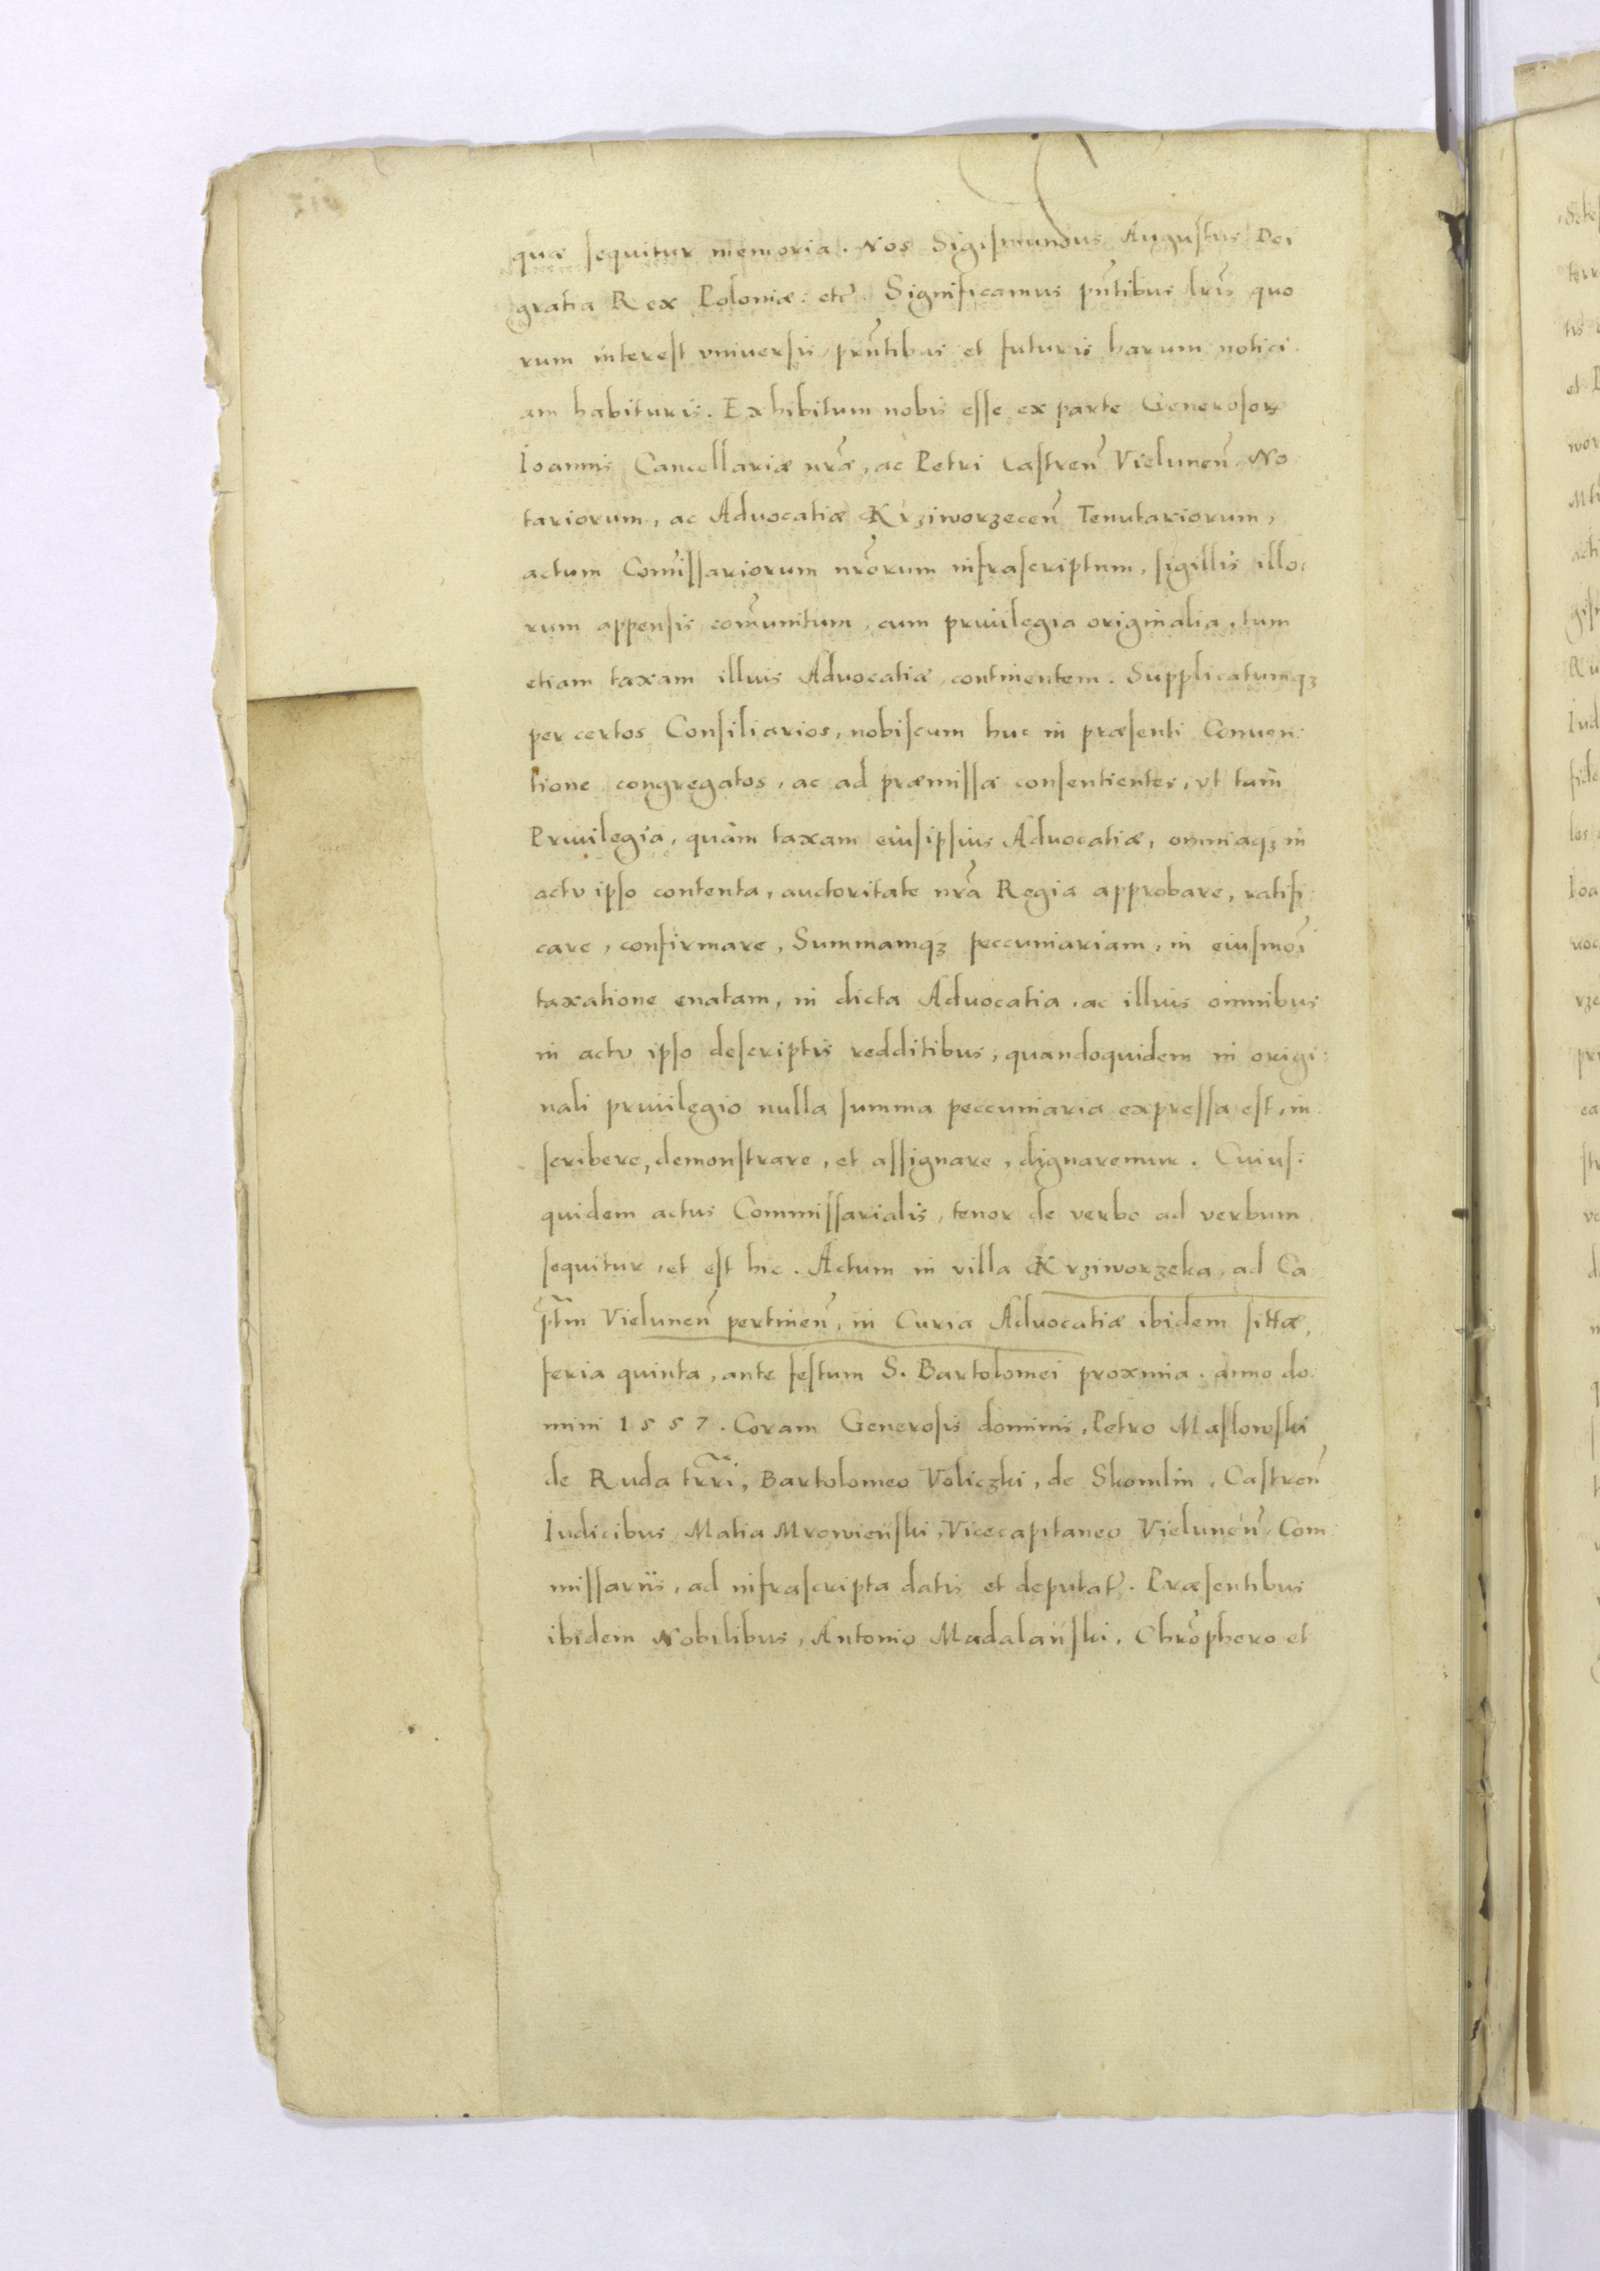 quæ sequitur memoria. Nos Sigismundus Augustus Dei
gratia Rex Poloniæ: etc̃. Significamus pñtibus lrĩs quo
rum interest vniversis, prñtibus et futuris harum notici
am habituris. Exhibitum nobis esse ex parte Generosorꝝ
Ioannis Cancellariæ nrãe, ac Petri Castreñ Vieluneñ No
tariorum, ac Advocatiæ Krziworzeceñ Tenutariorum,
actum Com̃issariorum nrõrum infrascriptum, sigillis illo:
rum appensis com̃unitum, cum privilegia originalia, tum
etiam taxam illius Advocatiæ, continentem. Supplicatumqꝫ
per certos Consiliarios, nobiscum huc in præsenti Conven:
tione congregatos, ac ad præmissa consentientes, vt tam
Privilegia, quàm taxam eiusipsius Advocatiæ, omniaqꝫ in
actv ipso contenta, auctoritate nrã Regia approbare, ratifi
care, confirmare, Summamqꝫ peccuniariam, in eiusmõi
taxatione enatam, in dicta Advocatia, ac illius omnibus
in actv ipso descriptis redditibus, quandoquidem in origi:
nali privilegio nulla summa peccuniaria expressa est, in
scribere, demonstrare, et assignare, dignaremur. Cuius:
quidem actus Commissarialis, tenor de verbo ad verbum
sequitur, et est hic. Actum in villa Krziworzeka, ad Ca
ptm̃ Vieluneñ pertineñ, in Curia Advocatiæ ibidem sittæ,
feria quinta, ante festum S. Bartolomei proxima. anno do
mini 1557. Coram Generosis dominis, Petro Maslowski
de Ruda trr̃i, Bartolomeo Voliczki, de Skomlin, Castreñ
Iudicibus, Matia Mrowieński, Vicecapitaneo Vieluneñ, Com
missariis, ad infrascripta datis et deputat̃. Præsentibus
ibidem Nobilibus, Antonio Madalański, Chrõphero et